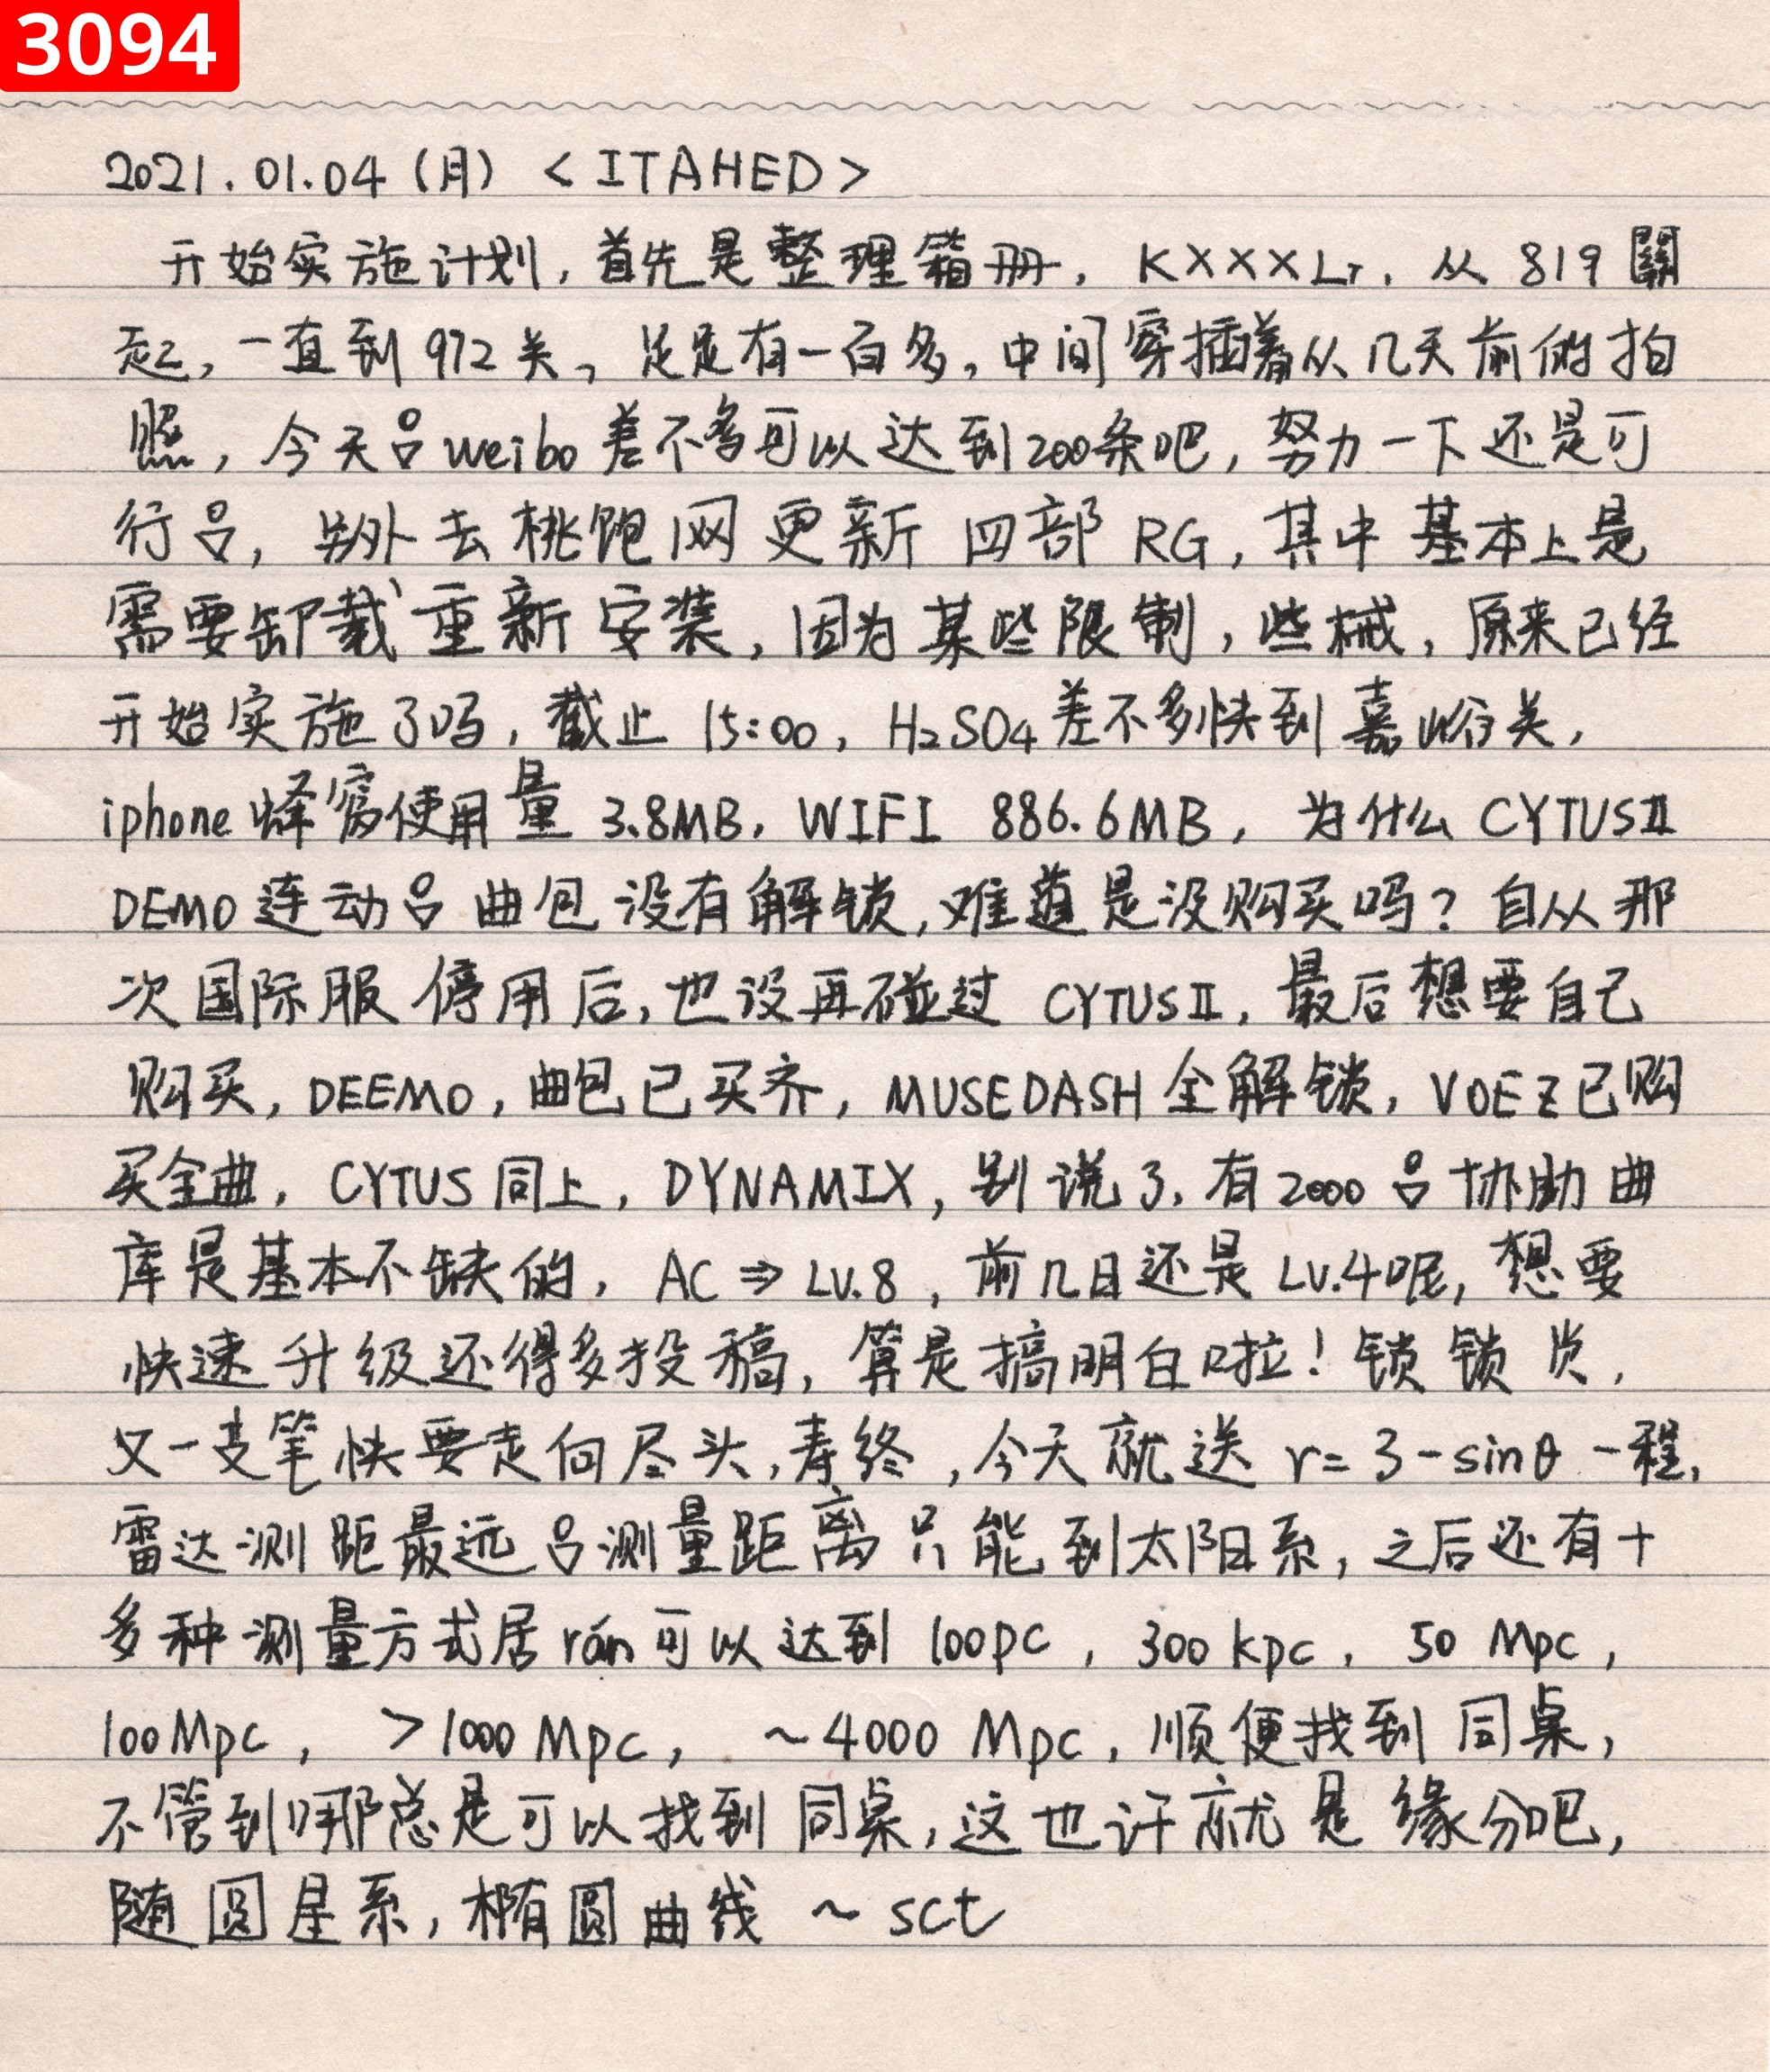 3094
2021.01.04(月) <ITAHED>
开始实施计划,首先是整理箱册, KXXXLr, 从 819 關
起,一直到972关,足足有一百多,中间穿插着从几天前的拍
照,今天呂weibo差不多可以达到200条吧,努力一下还是可
行呂,另外去桃饱网更新四部RG,其中基本上是
需要卸载重新安装,因为某些限制,些械,原来已经
开始实施了吗,截止15:00,H₂SO₄差不多快到嘉峪关,
iphone蜂窝使用量3.8MB,WIFI 886.6MB,为什么CYTUSⅡ
DEMO连动呂曲包没有解锁,难道是没购买吗?自从那
次国际服停用后,也没再碰过CYTUSⅡ,最后想要自己
购买,DEEMO,曲包已买齐,MUSEDASH全解锁,VOEZ已购
买全曲,CYTUS同上,DYNAMIX,别说了,有2000呂协助曲
库是基本不缺的,AC⇒LV.8,前几日还是LV.4呢,想要
快速升级还得多投稿,算是搞明白啦!锁锁
又一支笔快要走向尽头,寿终,今天就送r=3-sinθ一程,
雷达测距最远呂测量距离只能到太阳系,之后还有十
多种测量方式居rán可以达到100pc,300kpc,50 Mpc,
100Mpc, >1000Mpc, ~4000 Mpc,顺便找到同桌,
不管到哪总是可以找到同桌,这也许就是缘分吧,
随圆星系,椭圆曲线~sct